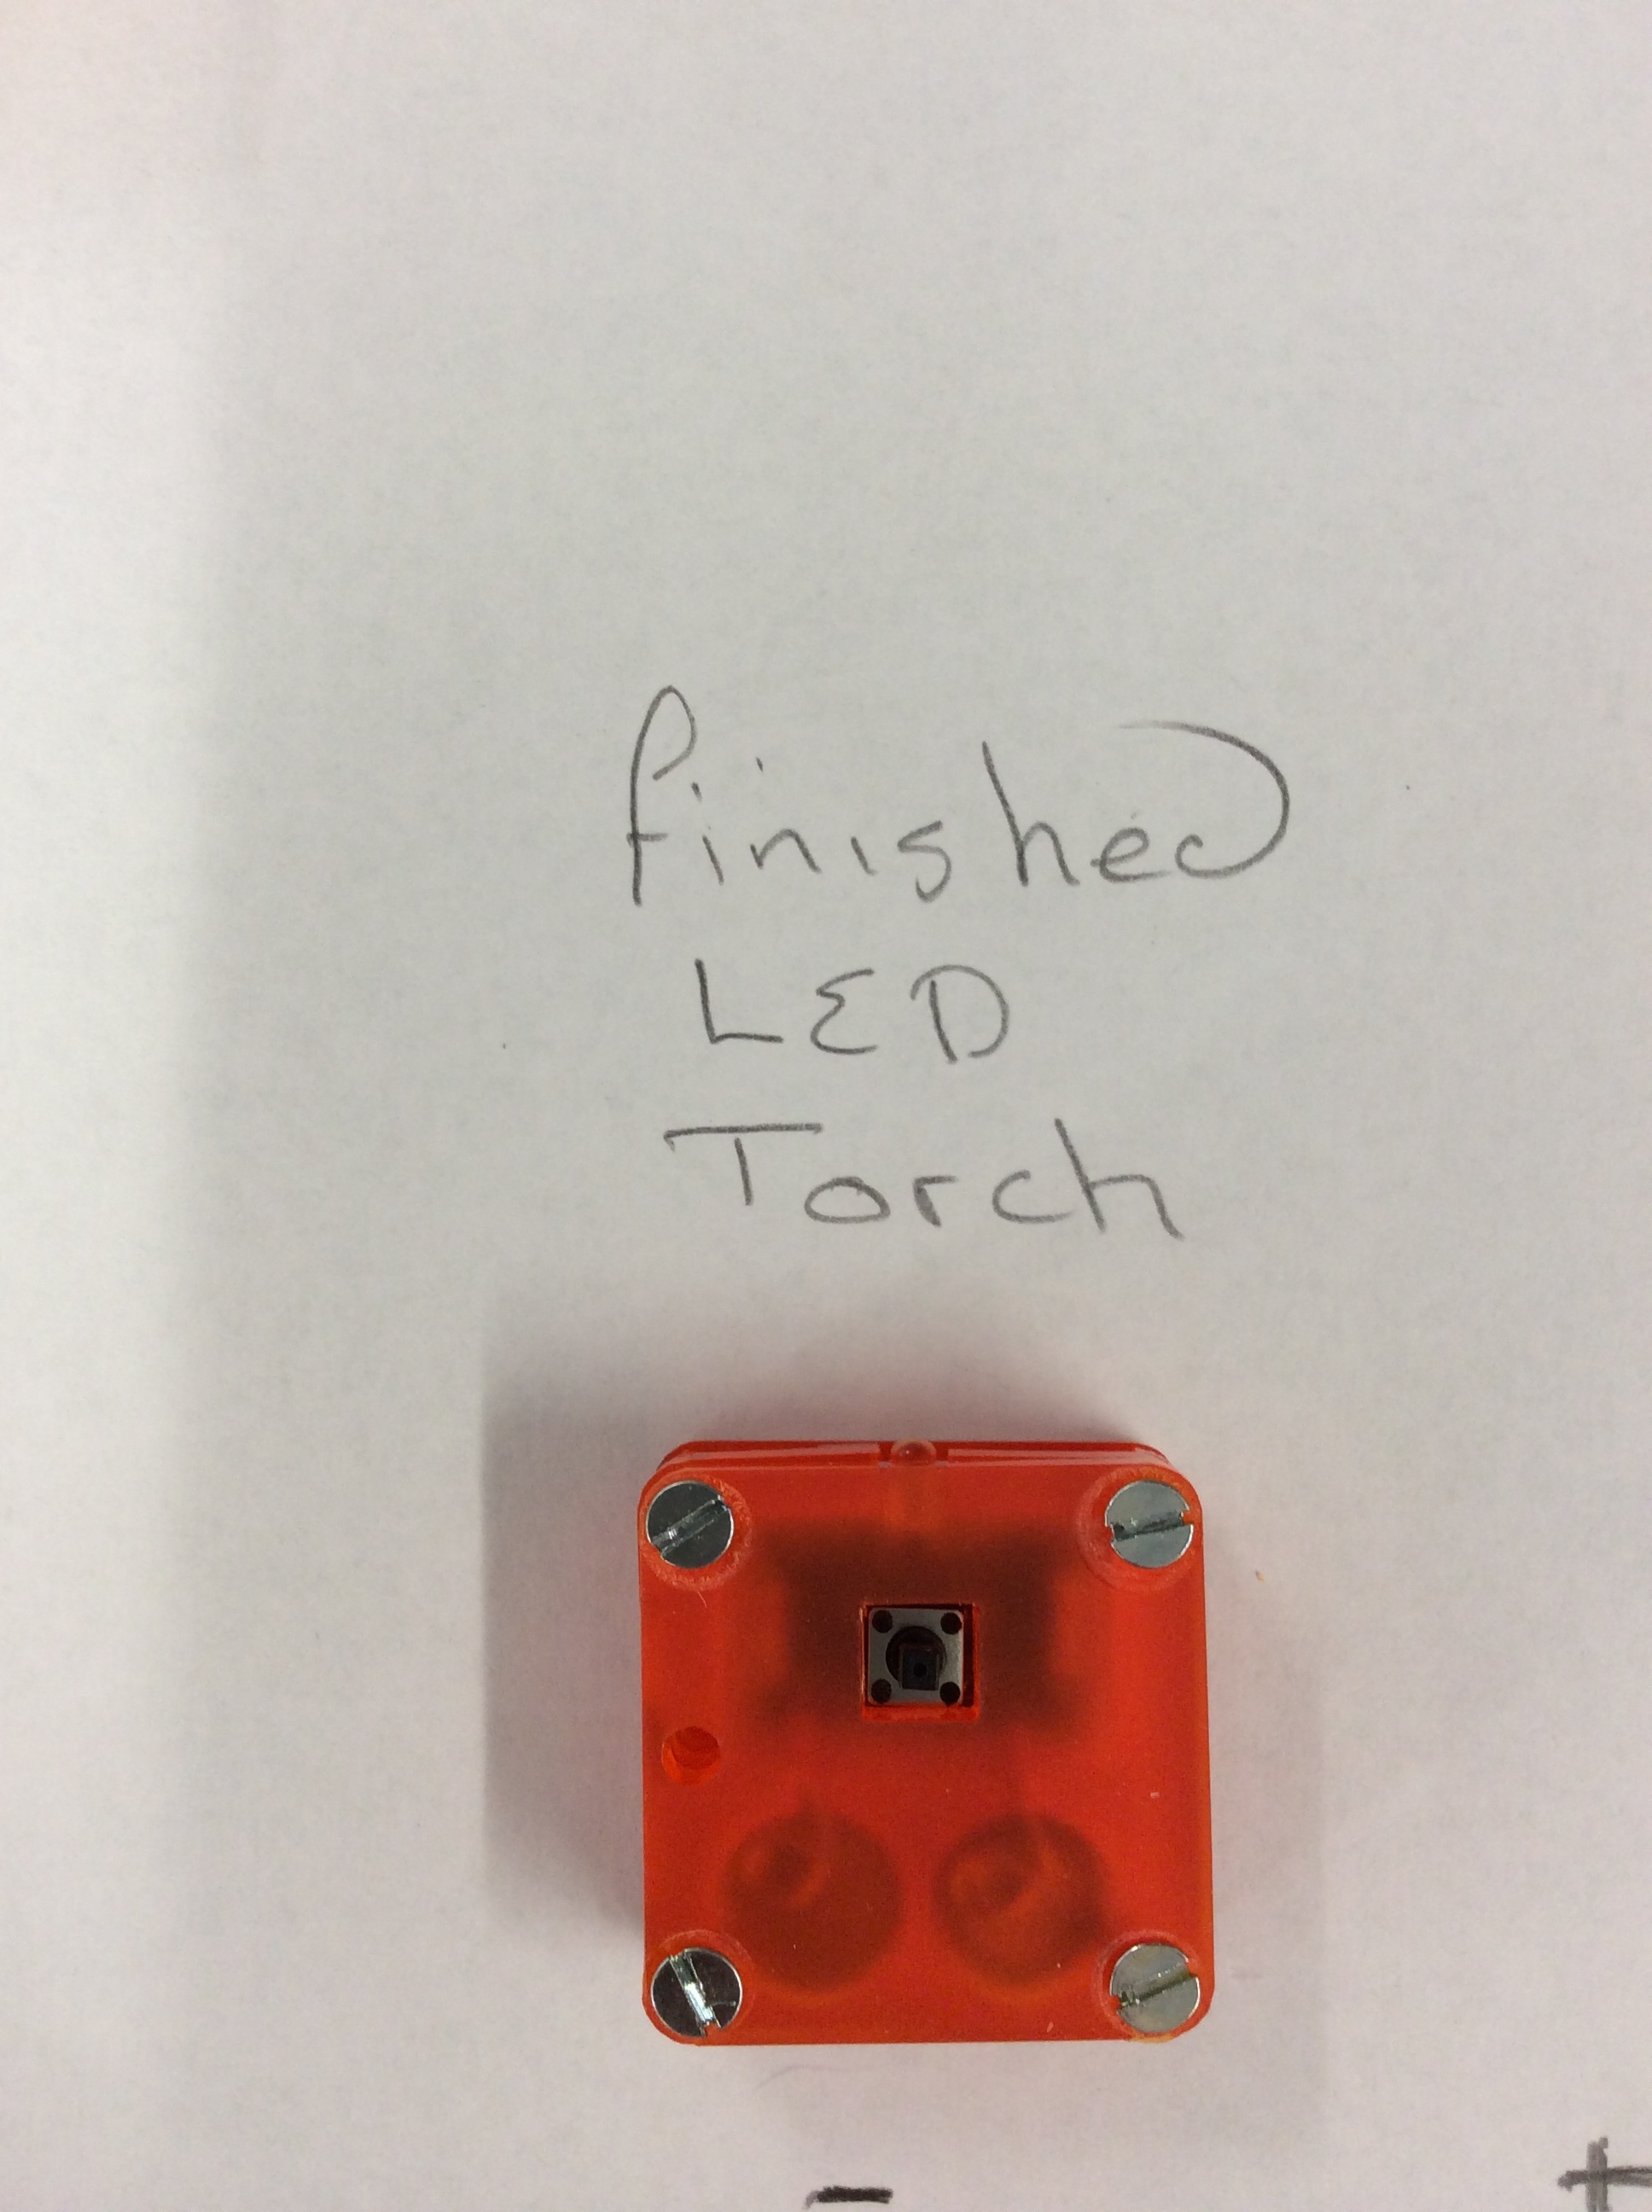 finished
LED
Torch
- +